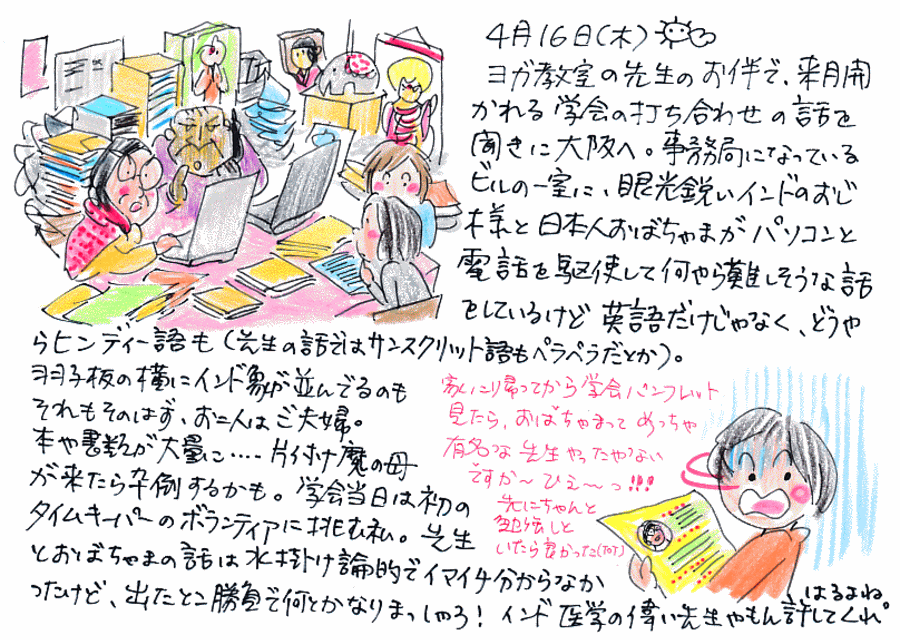 4月16日(木)
ヨガ教室の先生のお伴で、来月開
かれる学会の打ち合わせの話を
聞きに大阪へ。事務局になっている
ビルの一室に、眼光鋭いインドのおじ
様と日本人おばちゃまがパソコンと
電話を駆使して何やら難しそうな話
をしているけど英語だけじゃなく、どうや
らヒンディー語も(先生の話ではサンスクリット語もペラペラだとか)。
羽子板の横にインド象が並んでるのも
それもそのはず、お二人はご夫婦。
本や書類が大量に‥‥片付け魔の母
が来たら卒倒するかも。学会当日は初の
タイムキーパーのボランティアに挑む私。先生
とおばちゃまの話は水掛け論的でイマイチ分からなか
ったけど、出たとこ勝負で何とかなりまっしゃろ!インド医学の偉い先生やもん許してくれ
はるよね。
家に帰ってから学会パンフレット
見たら、おばちゃまってめっちゃ
有名な先生やったやない
ですか〜ひぇ〜っ!!!
先にちゃんと
勉強しと
いたら良かった(ToT)